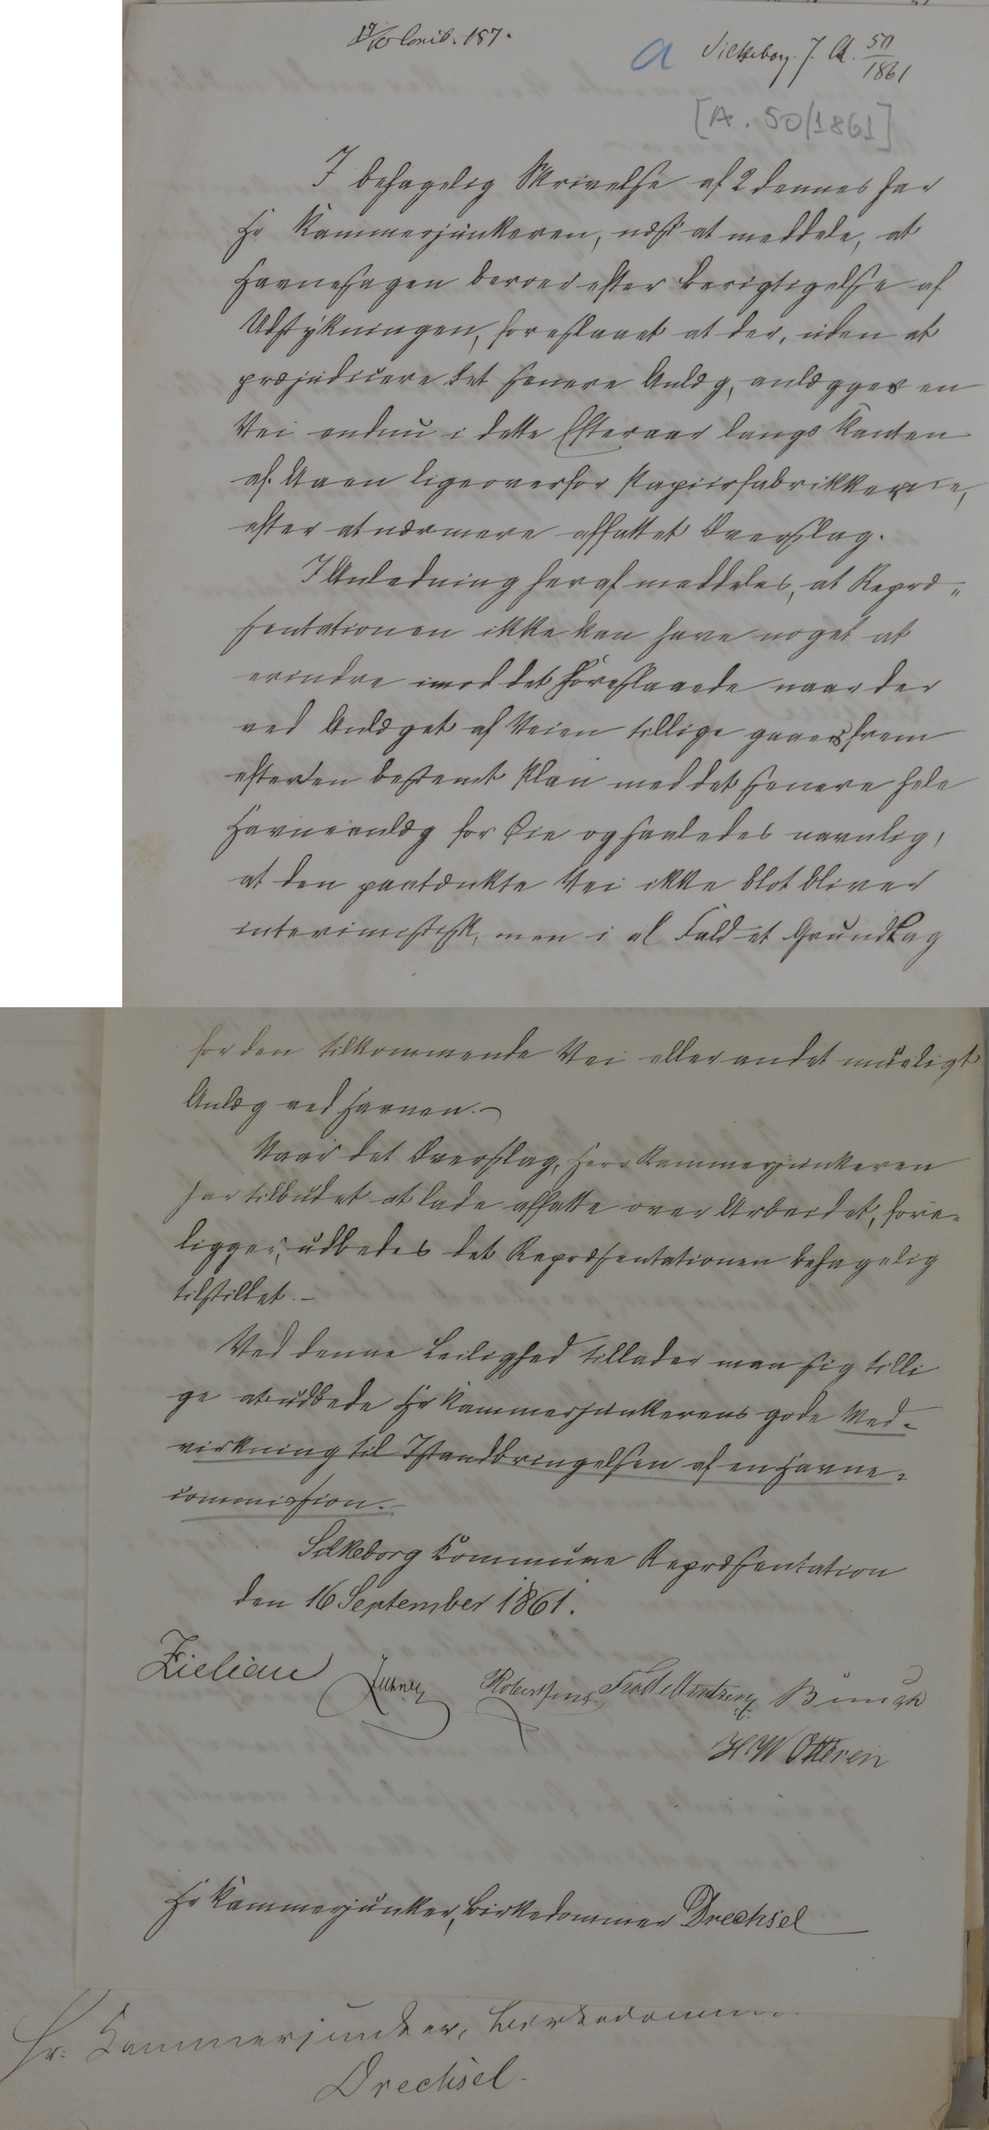 17/10 Conib. 157.
a Silkeborg J. A. 50/1861
[A. 50/1861]
I behagelig Skrivelse af 2 dennes har
Hr Kammerjunkeren, næst at meddele, at
Havnesagen beroer efter Berigtigelse af
Udstykningen, foreslaaet at der, uden at
præjudicere det senere Anlæg, anlægges en
Vei endnu i dette Efteraar langs Kanten
af Aaen ligeoverfor Papiirfabrikkerne,
efter et nærmere affattet Overslag.
I Anledning heraf meddeles, at Repræ-
sentationen ikke kan have noget at
erindre imod det Foreslaaede naar der
ved Anlæget af Veien tillige gaaes frem
efter en bestemt Plan med det senere hele
Havneanlæg for Øie og saaledes navnlig,
at den paatænkte Vei ikke blot bliver
interimistisk, men i al Fald et Grundlag
for den tilkommende Vei eller andet mueligt
Anlæg ved Havnen.-
Naar det Overslag, Herr Kammerjunkeren
har tilbudet at lade affatte over Arbeidet, fore-
ligger, udbedes det Repræsentationen behagelig
tilstillet.-
Ved denne Leilighed tillader man sig tilli
ge at udbede Hr Kammerjunkerens gode Med-
virkning til Istandbringelsen af en Havne-
commission.-
Silkeborg Commune Repræsentation
den 16 September 1861.
Zieliau Robertsen Bunch
H W Otteren
Hr Kammerjunker, Birkedommer Drechsel
Hr. Kammerjunker, Birkedommer
Drechsel.